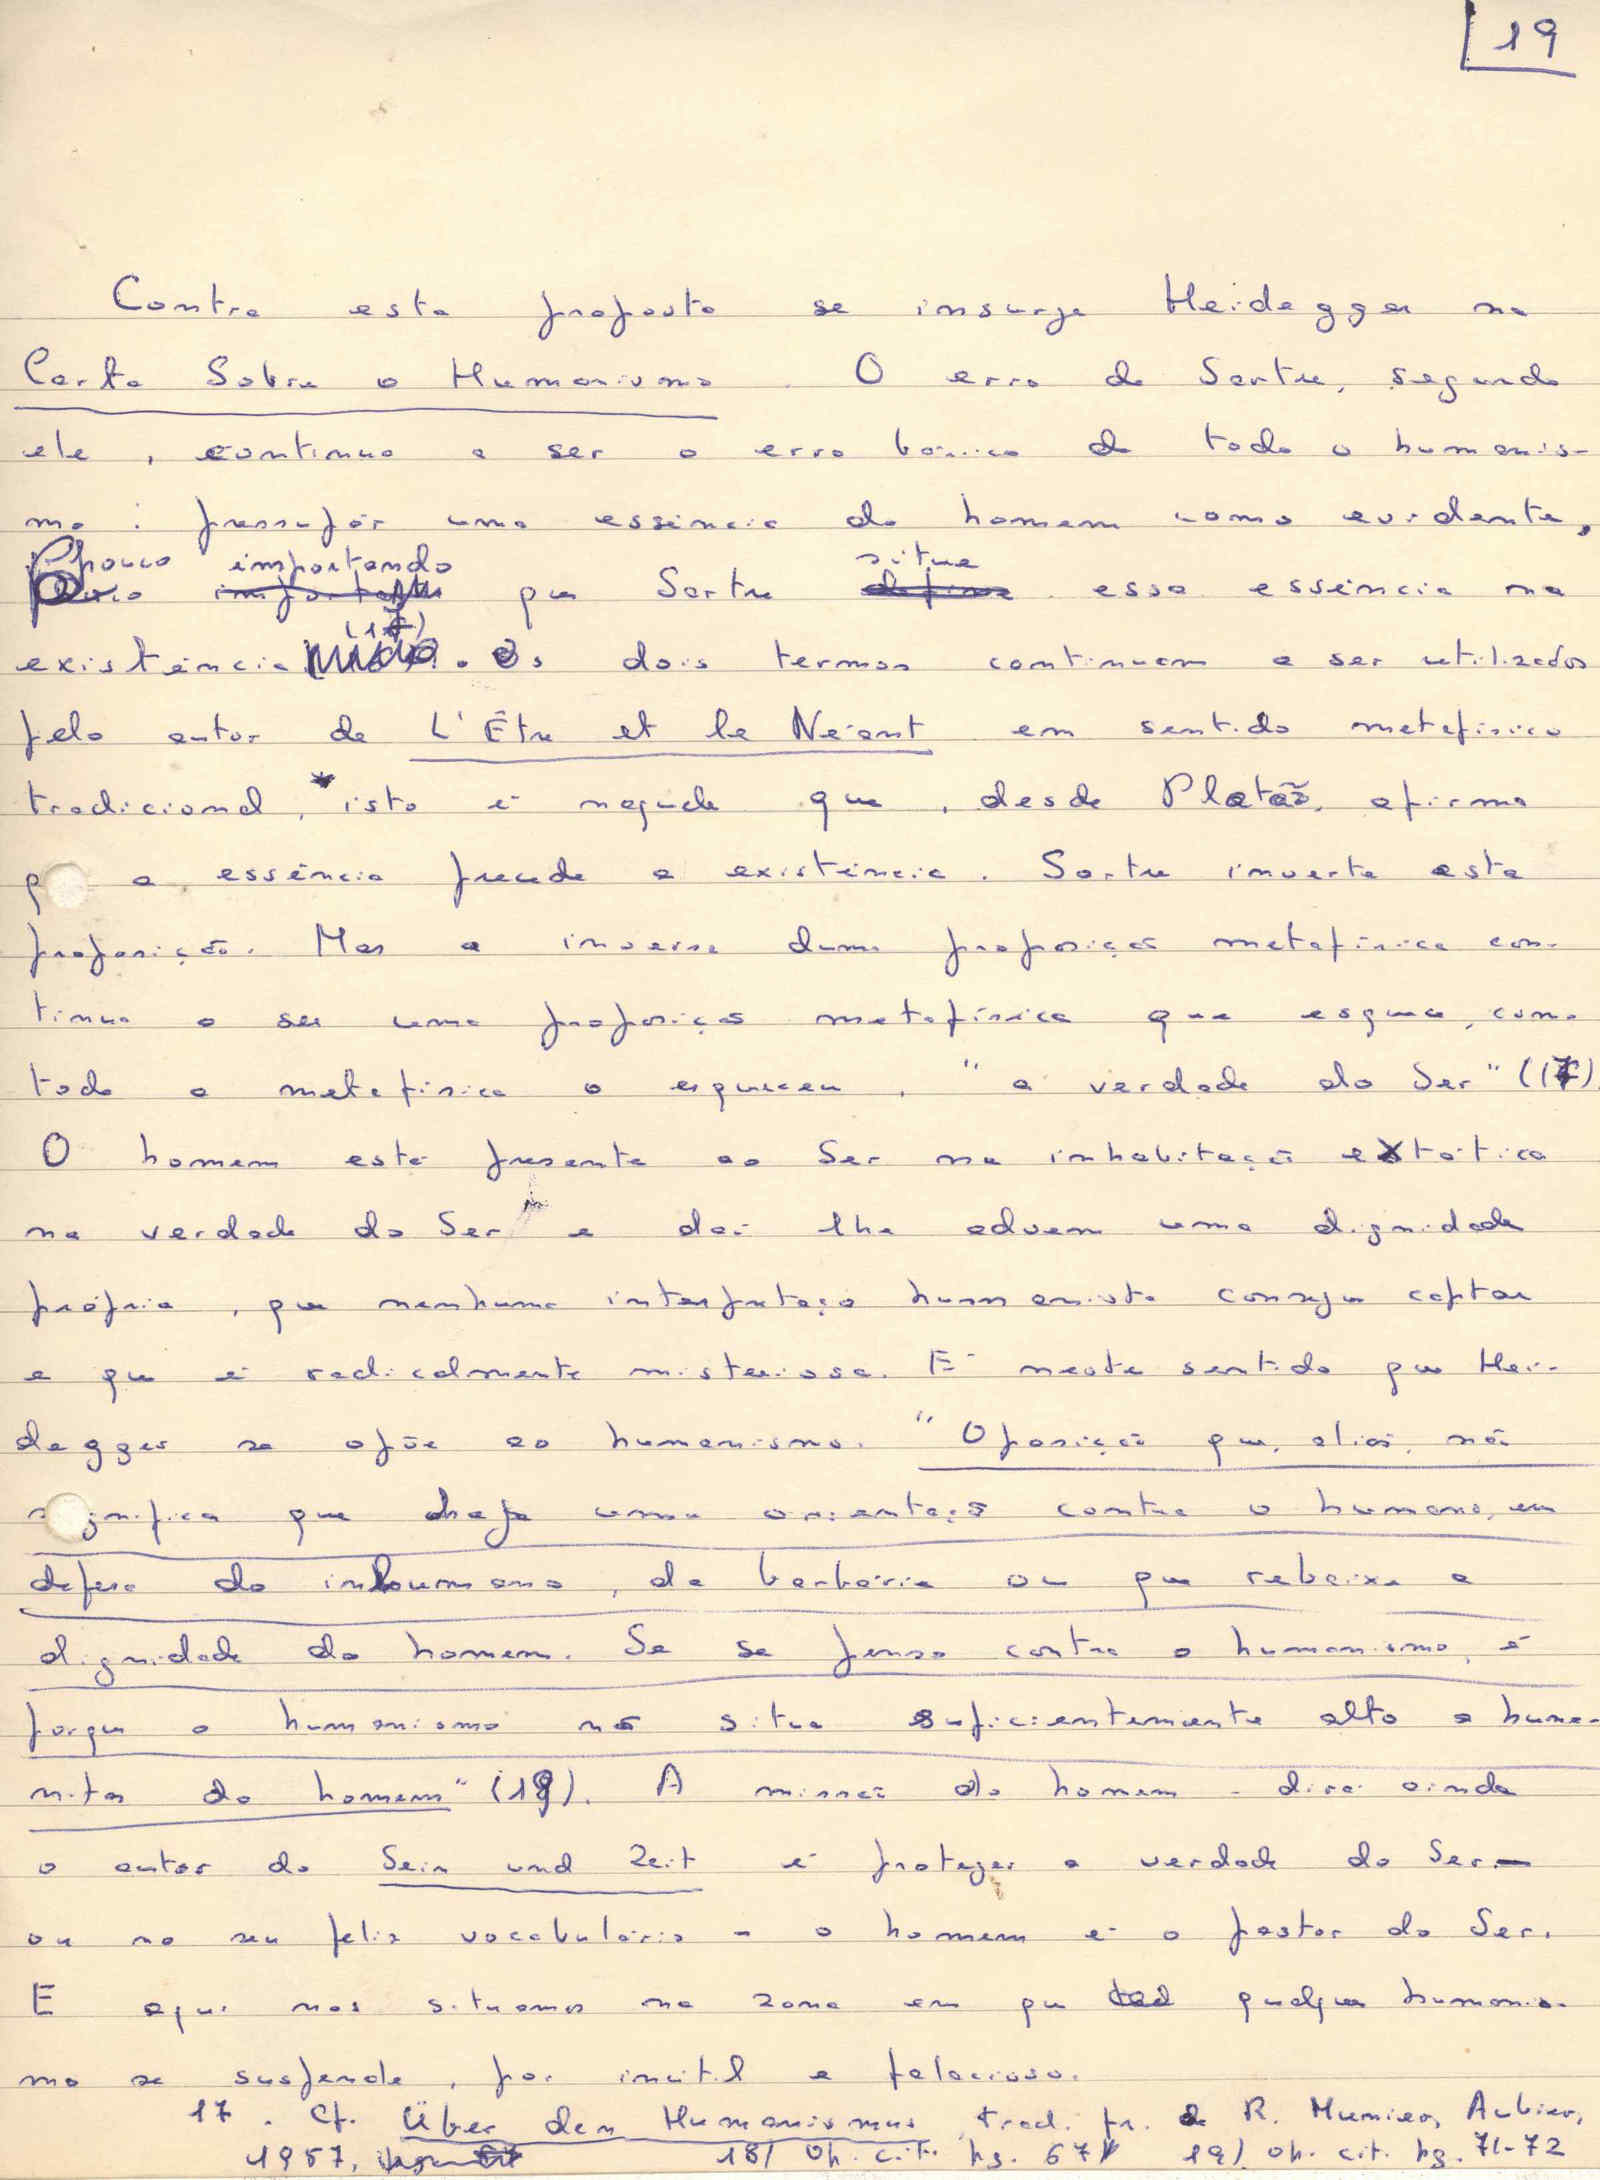 19
Contra esta proposta se insurge Heidegger na
Carta Sobre o Humanismo. O erro de Sartre, segundo
ele, continua a ser o erro básico de todo o humanis-
mo: pressupôr uma essência do homem como evidente,
pouco importando que Sartre situe essa essência na
existência (17). Os dois termos continuam a ser utilizados
pelo autor de L'Être et le Néant em sentido metafísico
tradicional, isto é naquele que, desde Platão, afirma
q a essência precede a existência. Sartre inverte esta
proposição. Mas a inversa duma proposição metafísica con-
tinua a ser uma proposição metafísica que esquece, como
toda a metafísica o esqueceu, "a verdade do Ser" (17)
O homem está presente ao Ser na inhabitação extática
na verdade do Ser e daí lhe advem uma dignidade
própria, que nenhuma interpretação humanista consegue captar
e que é radicalmente misteriosa. É neste sentido que Hei-
degger se opõe ao humanismo. "Oposição que, aliás, não
significa que haja uma orientação contra o humano, em
defesa do inhumano, da barbárie ou que rebaixe a
dignidade do homem. Se se pensa contra o humanismo, é
porque o humanismo não situa suficientemente alto a huma-
nitas do homem" (19). A missão do homem - dirá ainda
o autor do Sein und Zeit é proteger a verdade do Ser -
ou no seu feliz vocabulário - o homem é o pastor do Ser.
E aqui nos situamos na zona em que qualquer humanis-
mo se suspende, por inútil e falacioso.
17. Cf. Über den Humanismus, trad. fr. de R. Munier, Aubier,
1957, 18/ Op. cit. pg. 67 19/. Op. cit. pg. 71-72